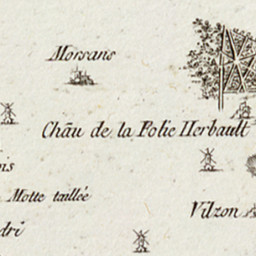 Morsans
Chāu de la Folie Herbault
is
Motte taillée
Vilzon
dri